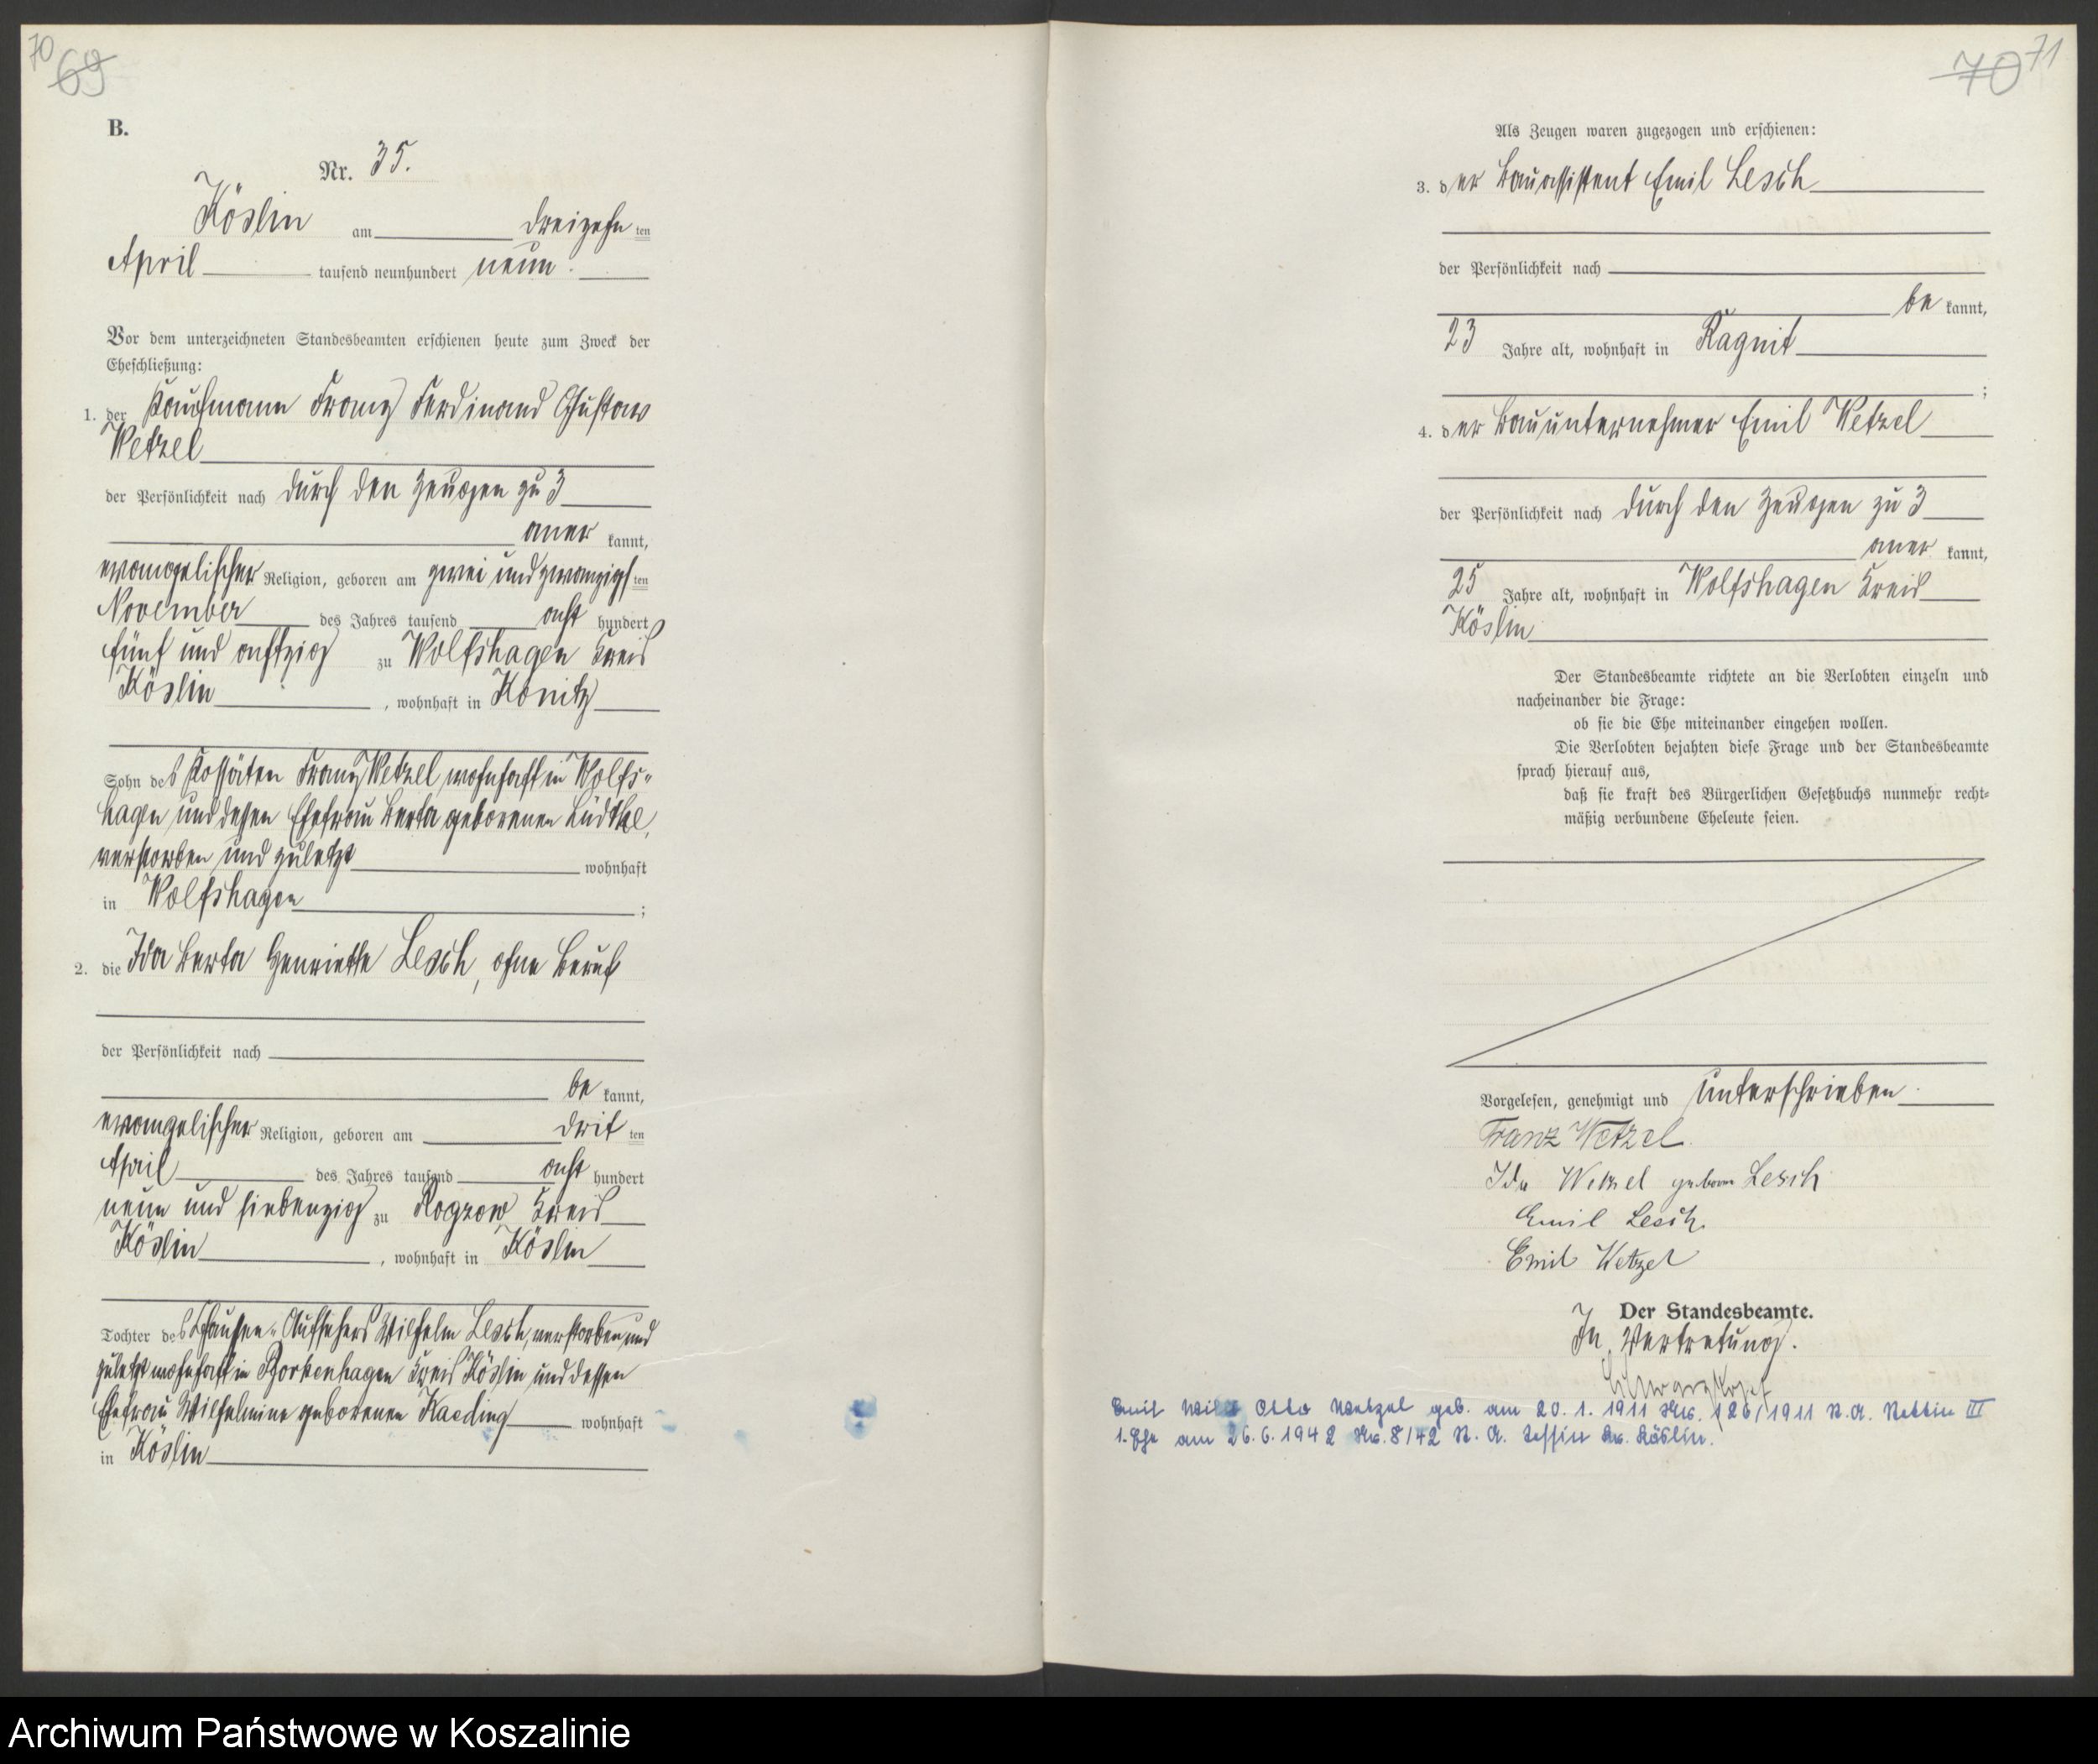 70
69
B.
Nr. 35.
Köslin am dreizehn ten
April tausend neunhundert neun.
Vor dem unterzeichneten Standesbeamten erschienen heute zum Zweck der
Eheschließung:
1. der Kaufmann Franz Ferdinand Gustav
Wetzel
der Persönlichkeit nach durch den Zeugen zu 3
aner kannt,
evangelischer Religion, geboren am zwei und zwanzigs ten
November des Jahres tausend acht hundert
fünf und achtzig zu Wolfshagen Kreis
Köslin, wohnhaft in Konitz
Sohn des Kossäten Franz Wetzel wohnhaft in Wolfs-
hagen und dessen Ehefrau Berta geborenen Lüdtke,
verstorben und zuletzt wohnhaft
in Wolfshagen;
2. die Ida Berta Henriette Lesch, ohne Beruf
der Persönlichkeit nach
be kannt,
evangelischer Religion, geboren am drit ten
April des Jahres tausend acht hundert
neun und siebenzig zu Rogzow Kreis
Köslin, wohnhaft in Köslin
Tochter des Chaussee-Aufsehers Wilhelm Lesch, verstorben und
zuletzt wohnhaft in Borkenhagen Kreis Köslin und dessen
Ehefrau Wilhelmine geborenen Kaeding wohnhaft
in Köslin
70 71
Als Zeugen waren zugezogen und erschienen:
3. der Bauassistent Emil Lesch
der Persönlichkeit nach
be kannt,
23 Jahre alt, wohnhaft in Ragnit
;
4. der Bauunternehmer Emil Wetzel
der Persönlichkeit nach durch den Zeugen zu 3
aner kannt,
25 Jahre alt, wohnhaft in Wolfshagen Kreis
Köslin
Der Standesbeamte richtete an die Verlobten einzeln und
nacheinander die Frage:
ob sie die Ehe miteinander eingehen wollen.
Die Verlobten bejahten diese Frage und der Standesbeamte
sprach hierauf aus,
daß sie kraft des Bürgerlichen Gesetzbuchs nunmehr recht-
mäßig verbundene Eheleute seien.
Vorgelesen, genehmigt und unterschrieben.
Franz Wetzel.
Ida Wetzel geborene Lesch
Emil Lesch.
Emil Wetzel
Der Standesbeamte.
In Vertretung.
Schwarzkopf
Emil Otto Wetzel geb. am 20.1.1911 Nr. 126/1911 St.A. Stettin III
1. Ehe am 26.6.1942 Nr. 8/42 St. A. Kr. Köslin.
Archiwum Państwowe w Koszalinie